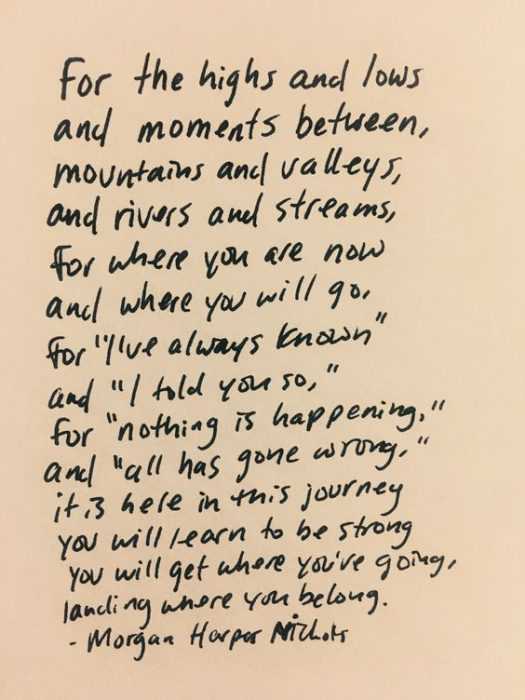 For the highs and lows
and moments between,
mountains and valleys,
and rivers and streams,
for where you are now
and where you will go,
for "I've always known"
and "I told you so,"
for "nothing is happening,"
and "all has gone wrong,"
it is here in this journey
you will learn to be strong
you will get where you're going,
landing where you belong.
- Morgan Harper Nichols